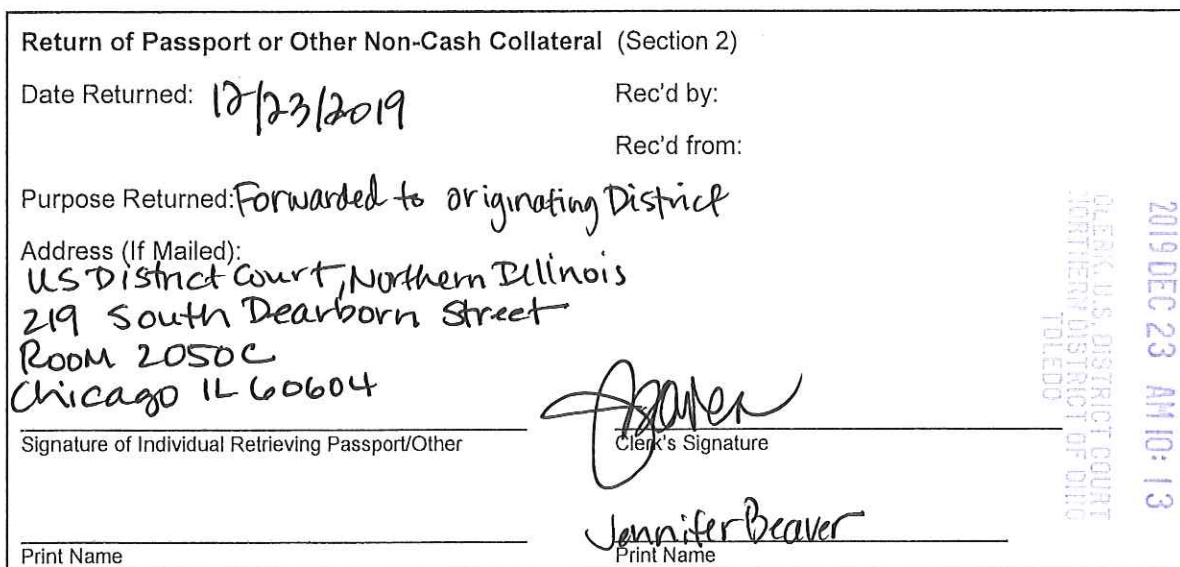 Return of Passport or Other Non-Cash Collateral (Section 2)
Date Returned: 12/23/2019 Rec'd by:
Rec'd from:
Purpose Returned: Forwarded to originating District
Address (If Mailed):
US District Court, Northern Illinois
219 South Dearborn Street
Room 2050C
Chicago IL 60604
Signature of Individual Retrieving Passport/Other
JBeaver
Clerk's Signature
Print Name
Jennifer Beaver
Print Name
2019 DEC 23 AM 10: 13
CLERK, U.S. DISTRICT COURT
NORTHERN DISTRICT OF OHIO
TOLEDO